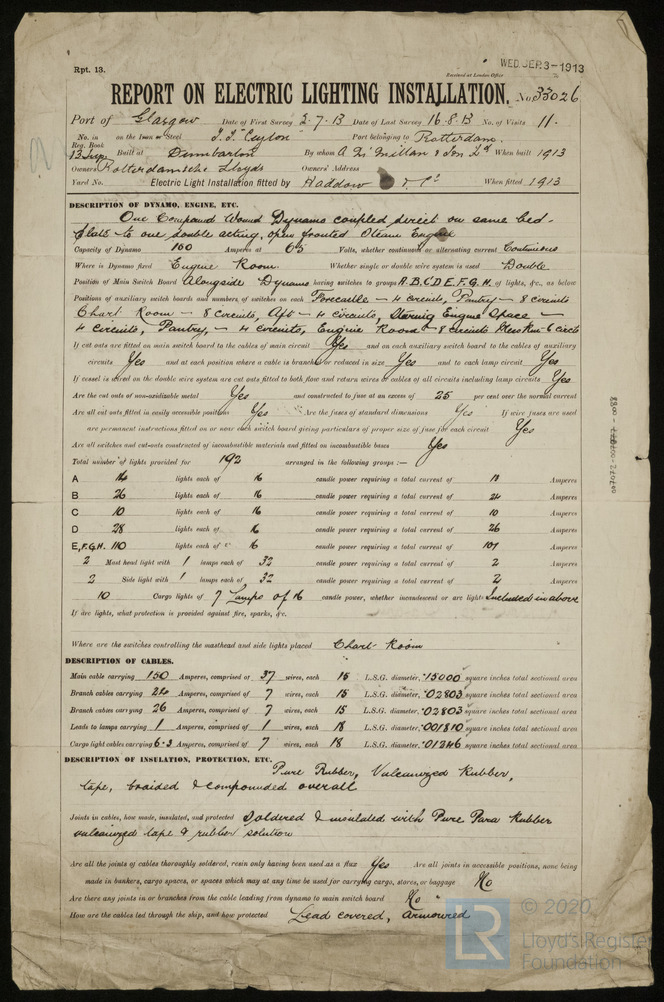 Rpt. 13.
Received at London Office
WED. SEP. 3 - 1913
REPORT ON ELECTRIC LIGHTING INSTALLATION. No. 33026
Port of Glasgow Date of First Survey 2.7.13 Date of Last Survey 16.8.13 No. of Visits 11.
No. in Reg. Book on the Iron or Steel Port belonging to Rotterdam.
13 Supp Built at Dumbarton By whom A. McMillan & Son Ld When built 1913
Owners Rotterdamsche Lloyds Owners' Address
Yard No. Electric Light Installation fitted by Haddow & Co When fitted 1913
DESCRIPTION OF DYNAMO, ENGINE, ETC.
One Compound Wound Dynamo coupled direct on same bed-
plate to one double acting, open fronted Steam Engine
Capacity of Dynamo 150 Amperes at 65 Volts, whether continuous or alternating current Continuous
Where is Dynamo fixed Engine Room Whether single or double wire system is used Double
Position of Main Switch Board Alongside Dynamo having switches to groups A.B.C.D.E.F.G.H. of lights, &c., as below
Positions of auxiliary switch boards and numbers of switches on each Forecastle - 4 circuits, Pantry - 8 circuits
Chart Room - 8 circuits, Aft - 4 circuits, Steering Engine Space -
4 circuits, Pantry, - 4 circuits, Engine Room - 8 circuits
If cut outs are fitted on main switch board to the cables of main circuit Yes and on each auxiliary switch board to the cables of auxiliary
circuits Yes and at each position where a cable is branched or reduced in size Yes and to each lamp circuit Yes
If vessel is wired on the double wire system are cut outs fitted to both flow and return wires or cables of all circuits including lamp circuits Yes
Are the cut outs of non-oxidizable metal Yes and constructed to fuse at an excess of 25 per cent over the normal current
Are all cut outs fitted in easily accessible positions Yes Are the fuses of standard dimensions Yes If wire fuses are used
are permanent instructions fitted on or near each switch board giving particulars of proper size of fuse for each circuit Yes
Are all switches and cut-outs constructed of incombustible materials and fitted on incombustible bases Yes
Total number of lights provided for 192 arranged in the following groups :—
A 14 lights each of 16 candle power requiring a total current of 13 Amperes
B 26 lights each of 16 candle power requiring a total current of 24 Amperes
C 10 lights each of 16 candle power requiring a total current of 10 Amperes
D 28 lights each of 16 candle power requiring a total current of 26 Amperes
E, F.G.H. 110 lights each of 16 candle power requiring a total current of 101 Amperes
2 Mast head light with 1 lamps each of 32 candle power requiring a total current of 2 Amperes
2 Side light with 1 lamps each of 32 candle power requiring a total current of 2 Amperes
10 Cargo lights of 7 Lamps of 16 candle power, whether incandescent or arc lights Included in above
If arc lights, what protection is provided against fire, sparks, &c.
Where are the switches controlling the masthead and side lights placed Chart Room
DESCRIPTION OF CABLES.
Main cable carrying 150 Amperes, comprised of 37 wires, each 15 L.S.G. diameter, .15000 square inches total sectional area
Branch cables carrying 24 Amperes, comprised of 7 wires, each 15 L.S.G. diameter, .02803 square inches total sectional area
Branch cables carrying 26 Amperes, comprised of 7 wires, each 15 L.S.G. diameter, .02803 square inches total sectional area
Leads to lamps carrying 1 Amperes, comprised of 1 wires, each 18 L.S.G. diameter, .001810 square inches total sectional area
Cargo light cables carrying 6.3 Amperes, comprised of 7 wires, each 18 L.S.G. diameter, .01246 square inches total sectional area
DESCRIPTION OF INSULATION, PROTECTION, ETC.
Pure Rubber, Vulcanized Rubber,
tape, braided & compounded overall
Joints in cables, how made, insulated, and protected Soldered & insulated with Pure Para Rubber
vulcanized tape & rubber solution
Are all the joints of cables thoroughly soldered, resin only having been used as a flux Yes Are all joints in accessible positions, none being
made in bunkers, cargo spaces, or spaces which may at any time be used for carrying cargo, stores, or baggage No
Are there any joints in or branches from the cable leading from dynamo to main switch board No
How are the cables led through the ship, and how protected Lead covered, armoured
© 2020
Lloyd's Register
Foundation
LR